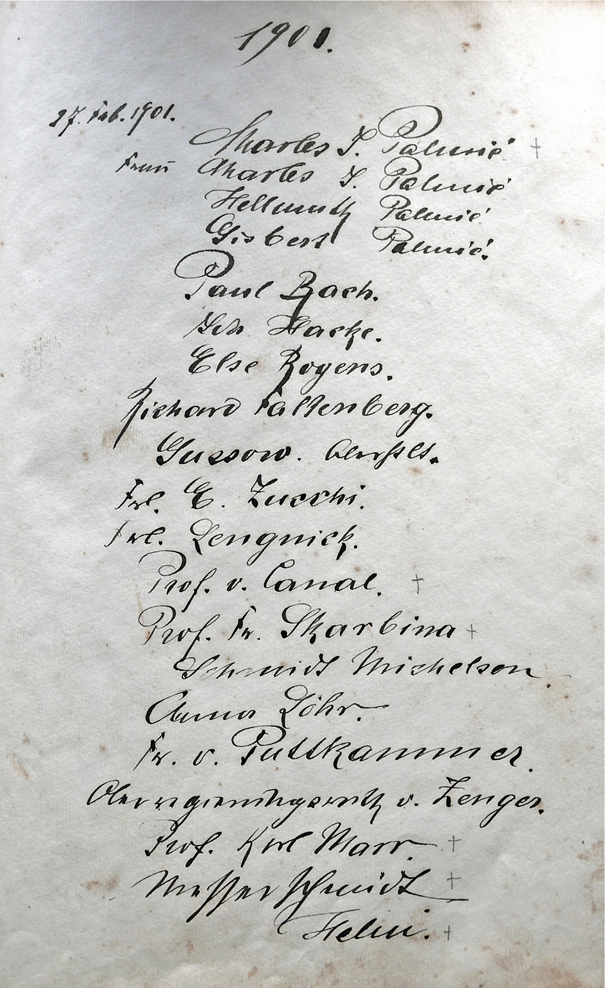 1901.
27. Feb. 1901.
Charles J. Palmié †
Frau Charles J. Palmié
Hellmuth Palmié
Gisbert Palmié.
Paul Bach.
Hacke.
Else Rogens.
Richard Falkenberg.
Gussow. Oberstlt.
Frl. E. Zucchi.
Frl. Lengnick.
Prof. v. Canal. †
Prof. Fr. Skarbina †
Schmidt Michelsen.
Anna Löhr.
Fr. v. Puttkammer.
Oberregierungsrath v. Zenger.
Prof. Karl Marr. †
Messerschmidt †
†